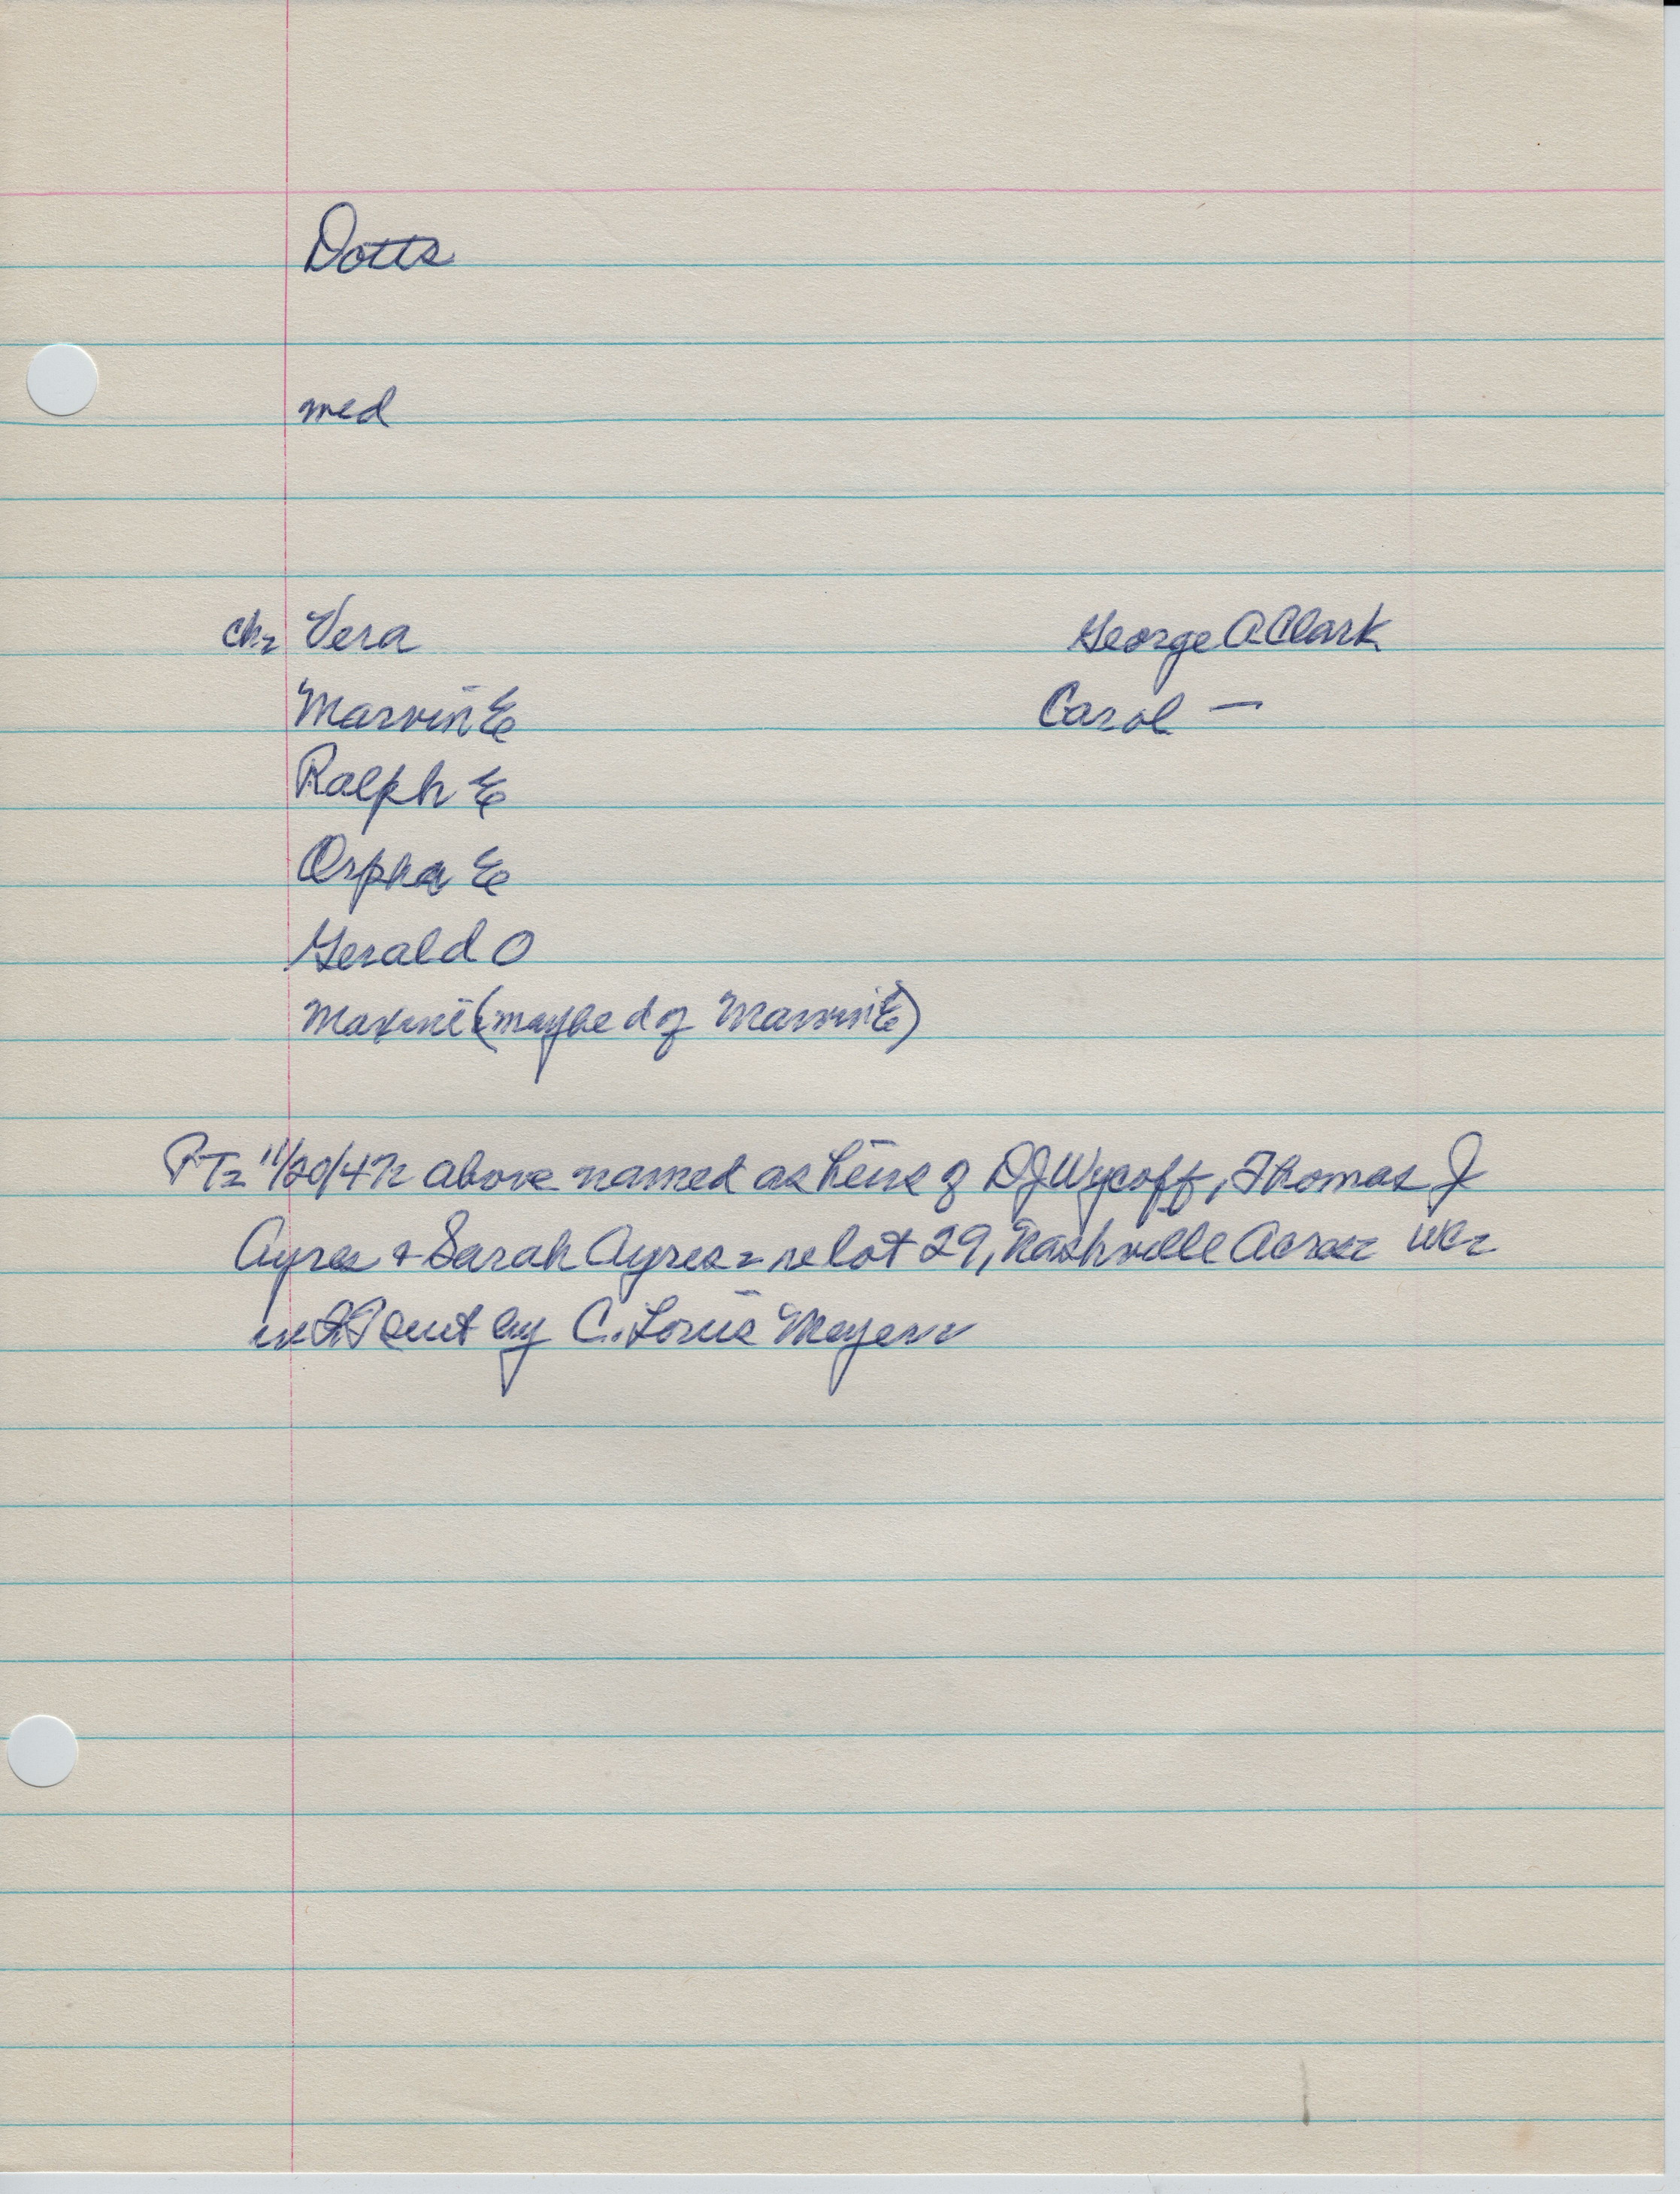 Dotts
med
ch: Vera George A Clark
Marvin E Carol —
Ralph E
Orpha E
Gerald O
Maxine (maybe d of Marvin E)
PT: 11/20/47: above named as heirs of DJ Wycoff, Thomas J
Ayres & Sarah Ayres: re lot 29, Nashville Acres:
by C. Louis Meyer: